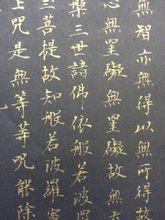 無智亦無得以無所得故
心無罣礙無罣礙故無
槃三世諸佛依般若波羅
三菩提故知般若波羅蜜
上咒是無等等咒能除